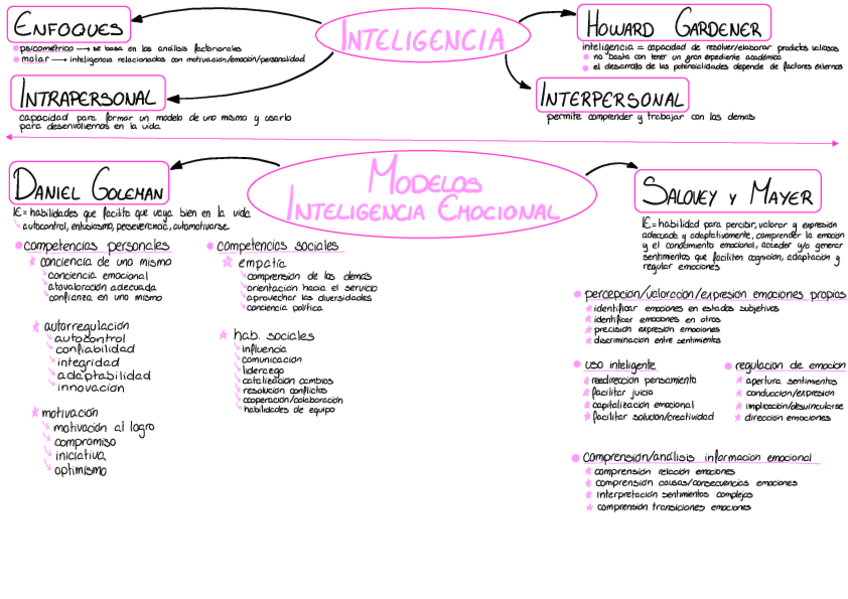 ENFOQUES
psicométrico → se basa en los análisis factoriales
molar → inteligencia relacionados con motivación/emoción/personalidad
INTELIGENCIA
HOWARD GARDENER
inteligencia = capacidad de resolver/elaborar productos valiosos
no basta con tener un gran expediente académico
el desarrollo de las potencialidades depende de factores externos
INTRAPERSONAL
capacidad para formar un modelo de uno mismo y usarlo
para desenvolvernos en la vida
INTERPERSONAL
permite comprender y trabajar con los demás
MODELOS
INTELIGENCIA EMOCIONAL
DANIEL GOLEMAN
IE = habilidades que facilita que vaya bien en la vida
autocontrol, entusiasmo, perseverancia, automotivarse
competencias personales
conciencia de uno mismo
conciencia emocional
atovaloración adecuada
confianza en uno mismo
autorregulación
autocontrol
confiabilidad
integridad
adaptabilidad
innovación
motivación
motivación al logro
compromiso
iniciativa
optimismo
competencias sociales
empatía
comprensión de los demás
orientación hacia el servicio
aprovechar las diversidades
conciencia política
hab. sociales
influencia
comunicación
liderazgo
catalización cambios
resolución conflictos
cooperación/colaboración
habilidades de equipo
SALOVEY Y MAYER
IE = habilidad para percibir, valorar y expresión
adecuada y adaptativamente, comprender la emoción
y el conocimiento emocional, acceder y/o generar
sentimientos que faciliten cognición, adaptación y
regular emociones
percepción/valoración/expresión emociones propias
identificar emociones en estados subjetivos
identificar emociones en otros
precisión expresión emociones
discriminación entre sentimientos
uso inteligente
reedirección pensamiento
facilitar juicio
capitalización emocional
facilitar solución/creatividad
regulación de emoción
apertura sentimientos
conducción/expresión
implicación/desvincularse
dirección emociones
comprensión/análisis información emocional
comprensión relación emociones
comprensión causas/consecuencias emociones
interpretación sentimientos complejos
comprensión transiciones emociones